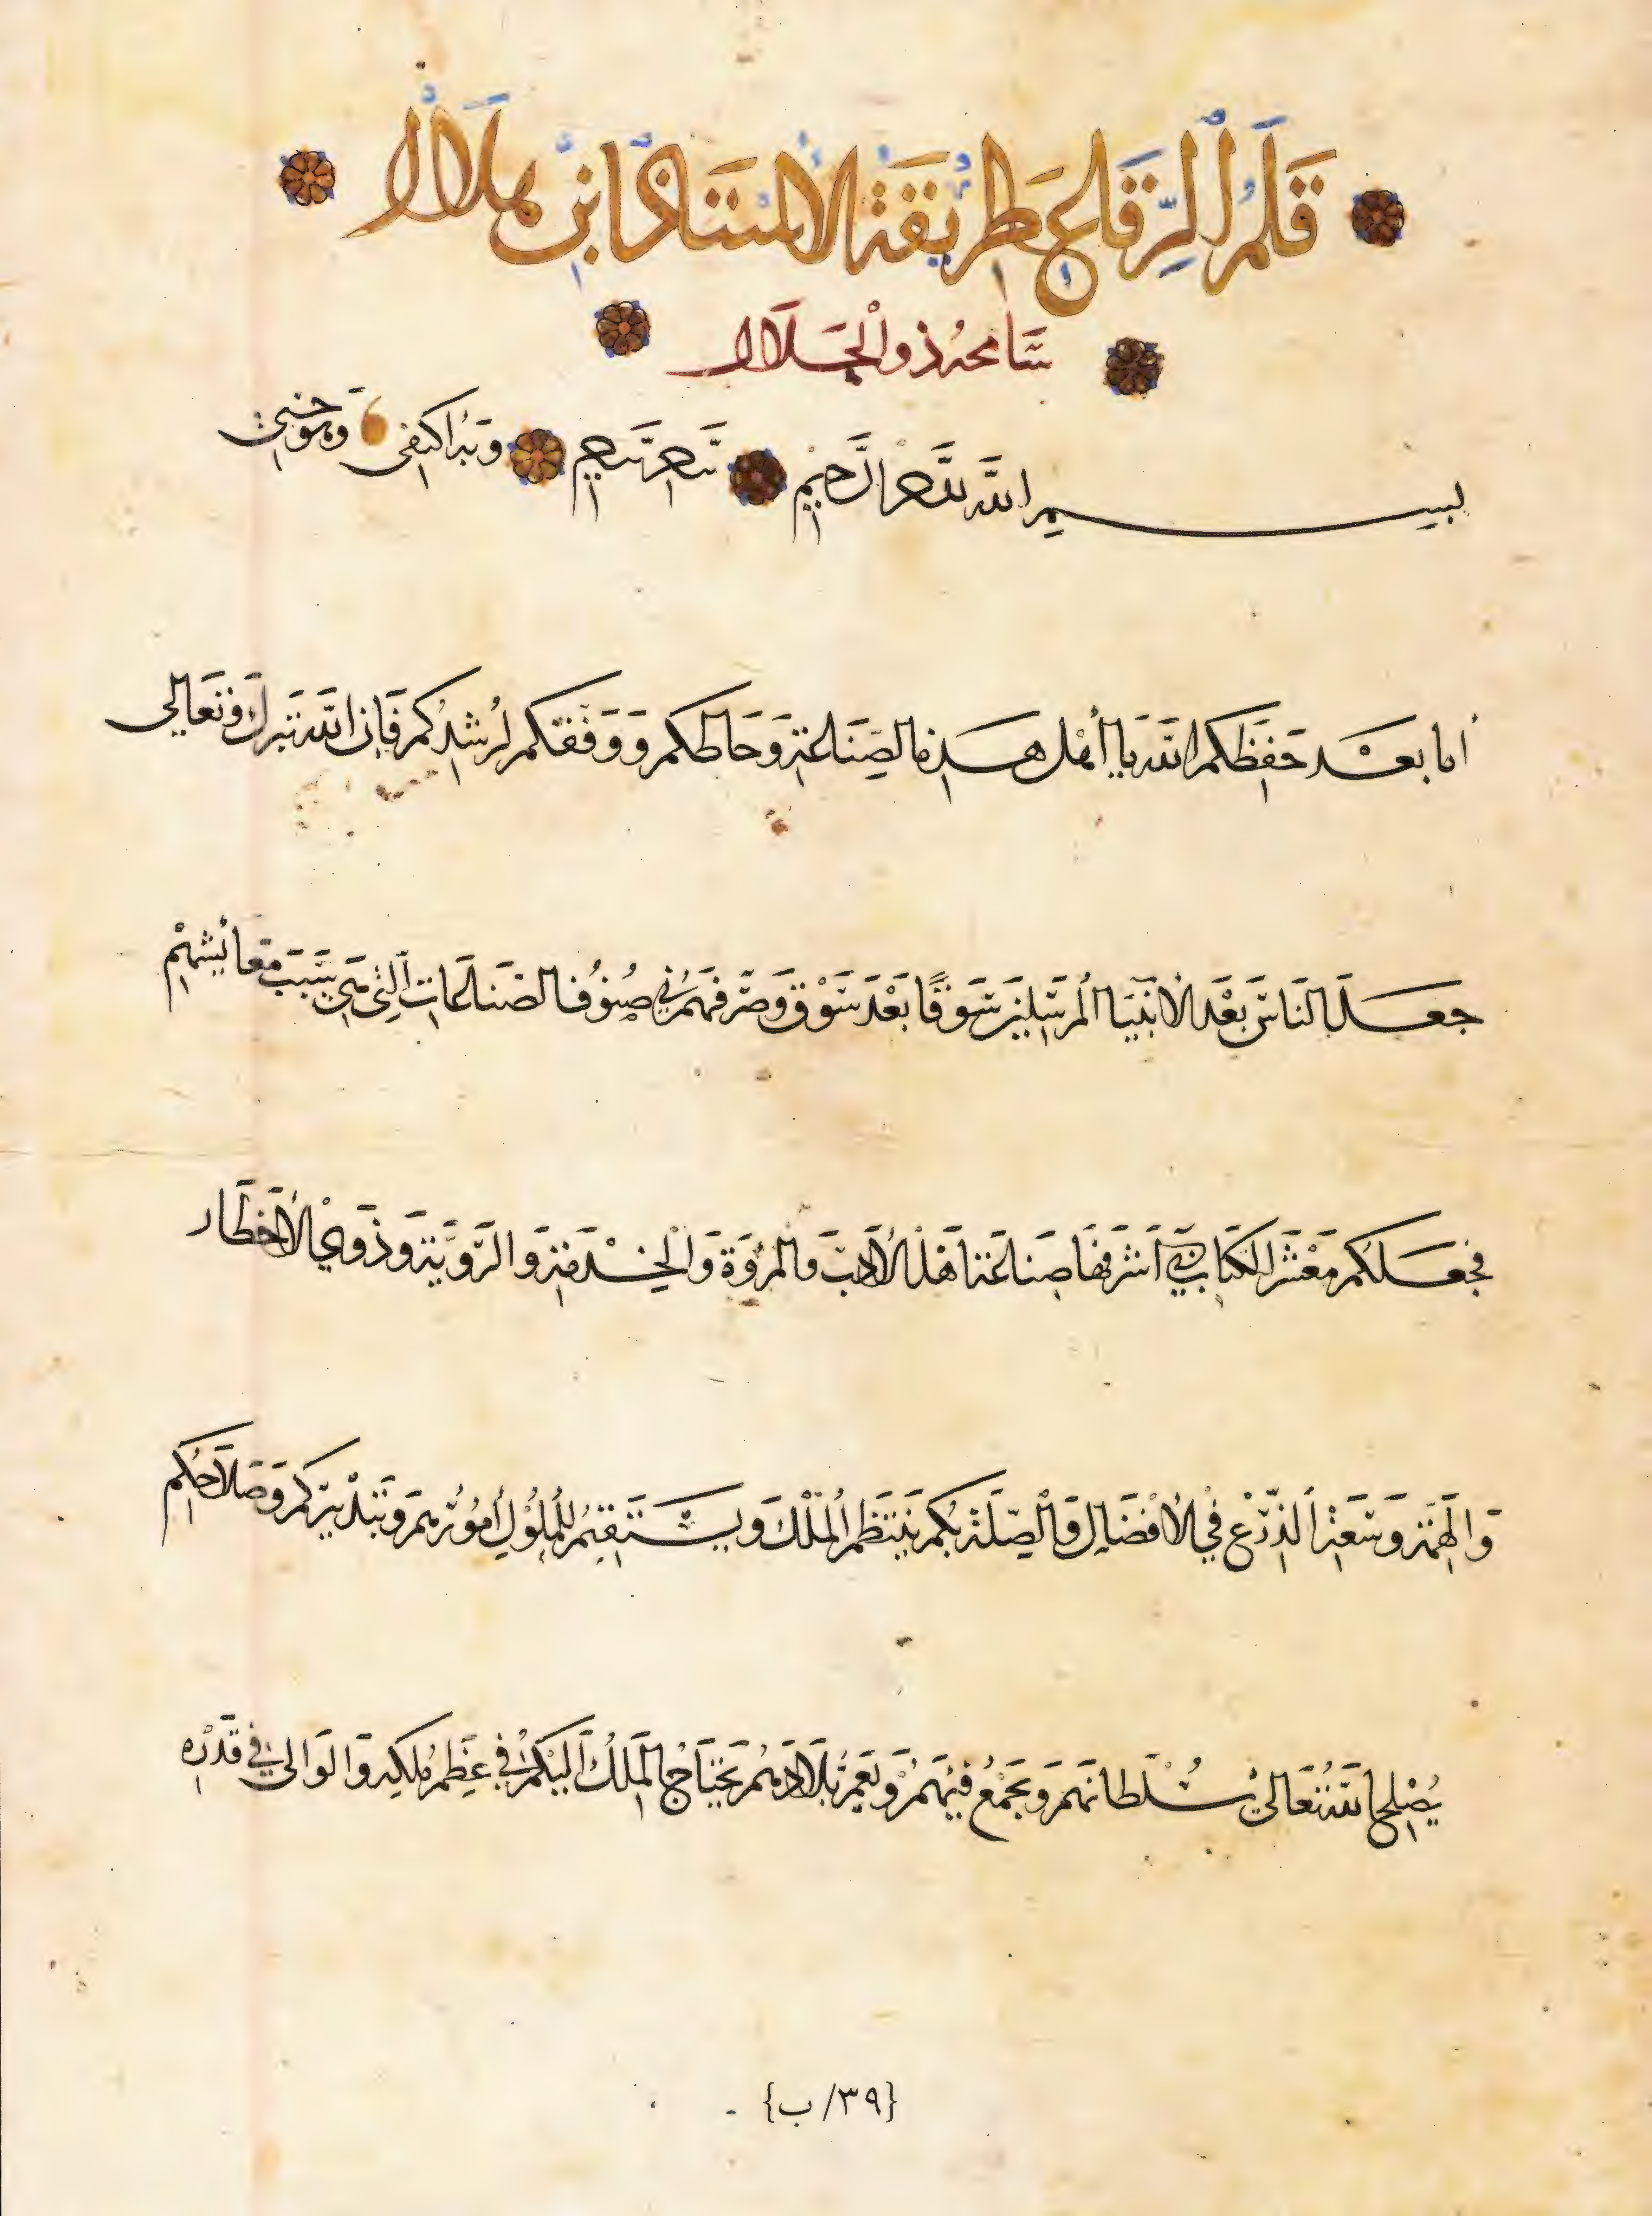 قَلَمُ الرِّقَاعِ طَرِيقَةُ الأُسْتَاذِ ابْنِ هِلَالْ
سَامحَهُ ذُو الْجَلَالْ
بسم الله الرحمن الرحيم وبه اكتفى وهو حسبي
أما بعد حَفِظَكم الله يَا أهْل هَذه الصِّنَاعَةِ وَحَاطكم وَوَفَّقَكم لِرُشْدِكُم فَإن الله تَبَرك وَتَعَالى
جعَلَ النَاسَ بَعْدَ الأنْبِيَا المُرسَلِينَ سَوْقًا بَعْدَ سَوْقٍ وَصَرَّفَهُم في صُنُوفِ الصنَاعَاتِ الَّتي هي سَبَبَ مَعَائِشِهِمْ
فَجعَلَكُم مَعْشَر الكتَابِ في أشرَفِهَا صِنَاعَةً أهْلَ الأدَبِ والمرُوَّةِ وَالْخِدْمَةِ وَالرَّوِيَّةِ وَذَوِي الأخطَار
وَالهِمَّةِ وَسَعَةِ الذَّرْعِ في الأفْضَالِ وَالْصِّلَةِ بكم يَنتَظِم المُلْكَ وَيسْتَقِيمُ لِلْمُلُوكِ أمُوْرُهِم وَبِتَدْبِيرِكُم وَصَلَاحِكُم
يُصْلِح اللهُ تَعَالى سُلْطانَهم وَيَجْمَعُ فَيْئَهُمْ وَيَعْمرُ بِلَادَهم يَحْتَاجُ المَلِكُ إليْكُمْ في عَظِيم مُلْكِه وَالوَالي في قَدْرِه
{٣٩/ب}